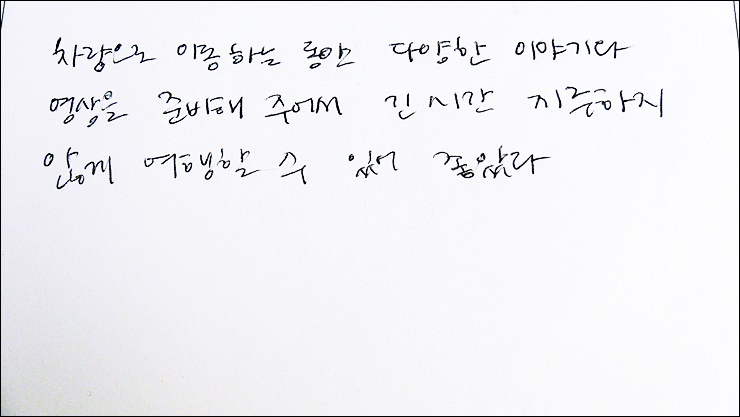 차량으로 이동하는 동안 다양한 이야기다
영상을 준비해 주어서 긴 시간 지루하지
않게 여행할 수 있어 좋았다